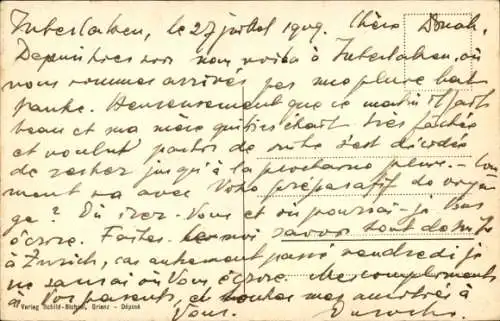 Interlaken, le 27 juillet 1909. Chère Donah,
Depuis hier soir nous voilà à Interlaken, où
nous sommes arrivés par une pluie bat
tante. Heureusement que ce matin il fait
beau et ma mère qui était très fâchée
et voulut partir de suite s'est décidée
de rester jusqu'à la prochaine pluie. - Com
ment va avec Vos préparatifs de voya
ge? Où irez-Vous et où pourrai-je Vous
écrire. Faites-le moi savoir tout de suite
à Zurich, car autrement passé vendredi je
ne saurai où Vous écrire. Mes compliments
à Vos parents, et toutes mes amitiés à
Vous.
Verlag Schild-Bichsel, Brienz - Déposé